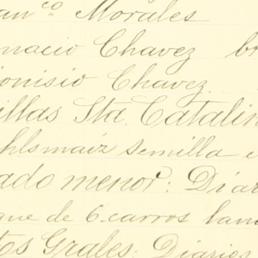 an^co Morales
nacio Chavez
onisio Chavez
illas Sta. Catalin
hls maiz semilla e
ado menor: Diar
que de 6 carros
tos Grales: Diarios